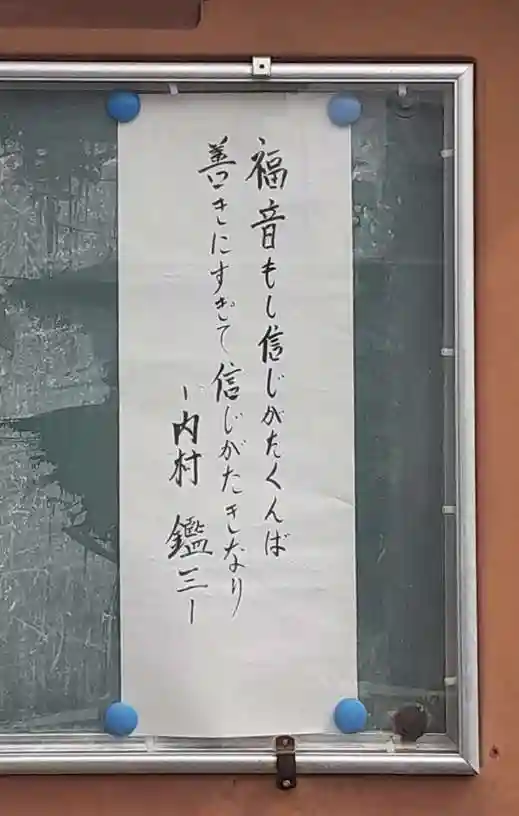 福音もし信じがたくんば
善きにすぎて信じがたきなり
-内村 鑑三-